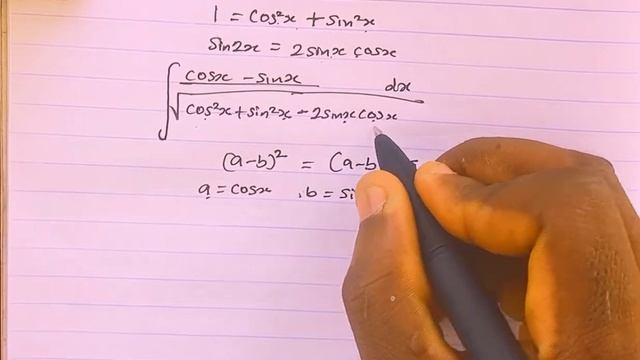 1 = cos²x + sin²x
sin2x = 2sinx cosx
∫ cosx - sinx dx
√cos²x + sin²x - 2sinx cosx
(a-b)² = (a-b
a = cosx , b =